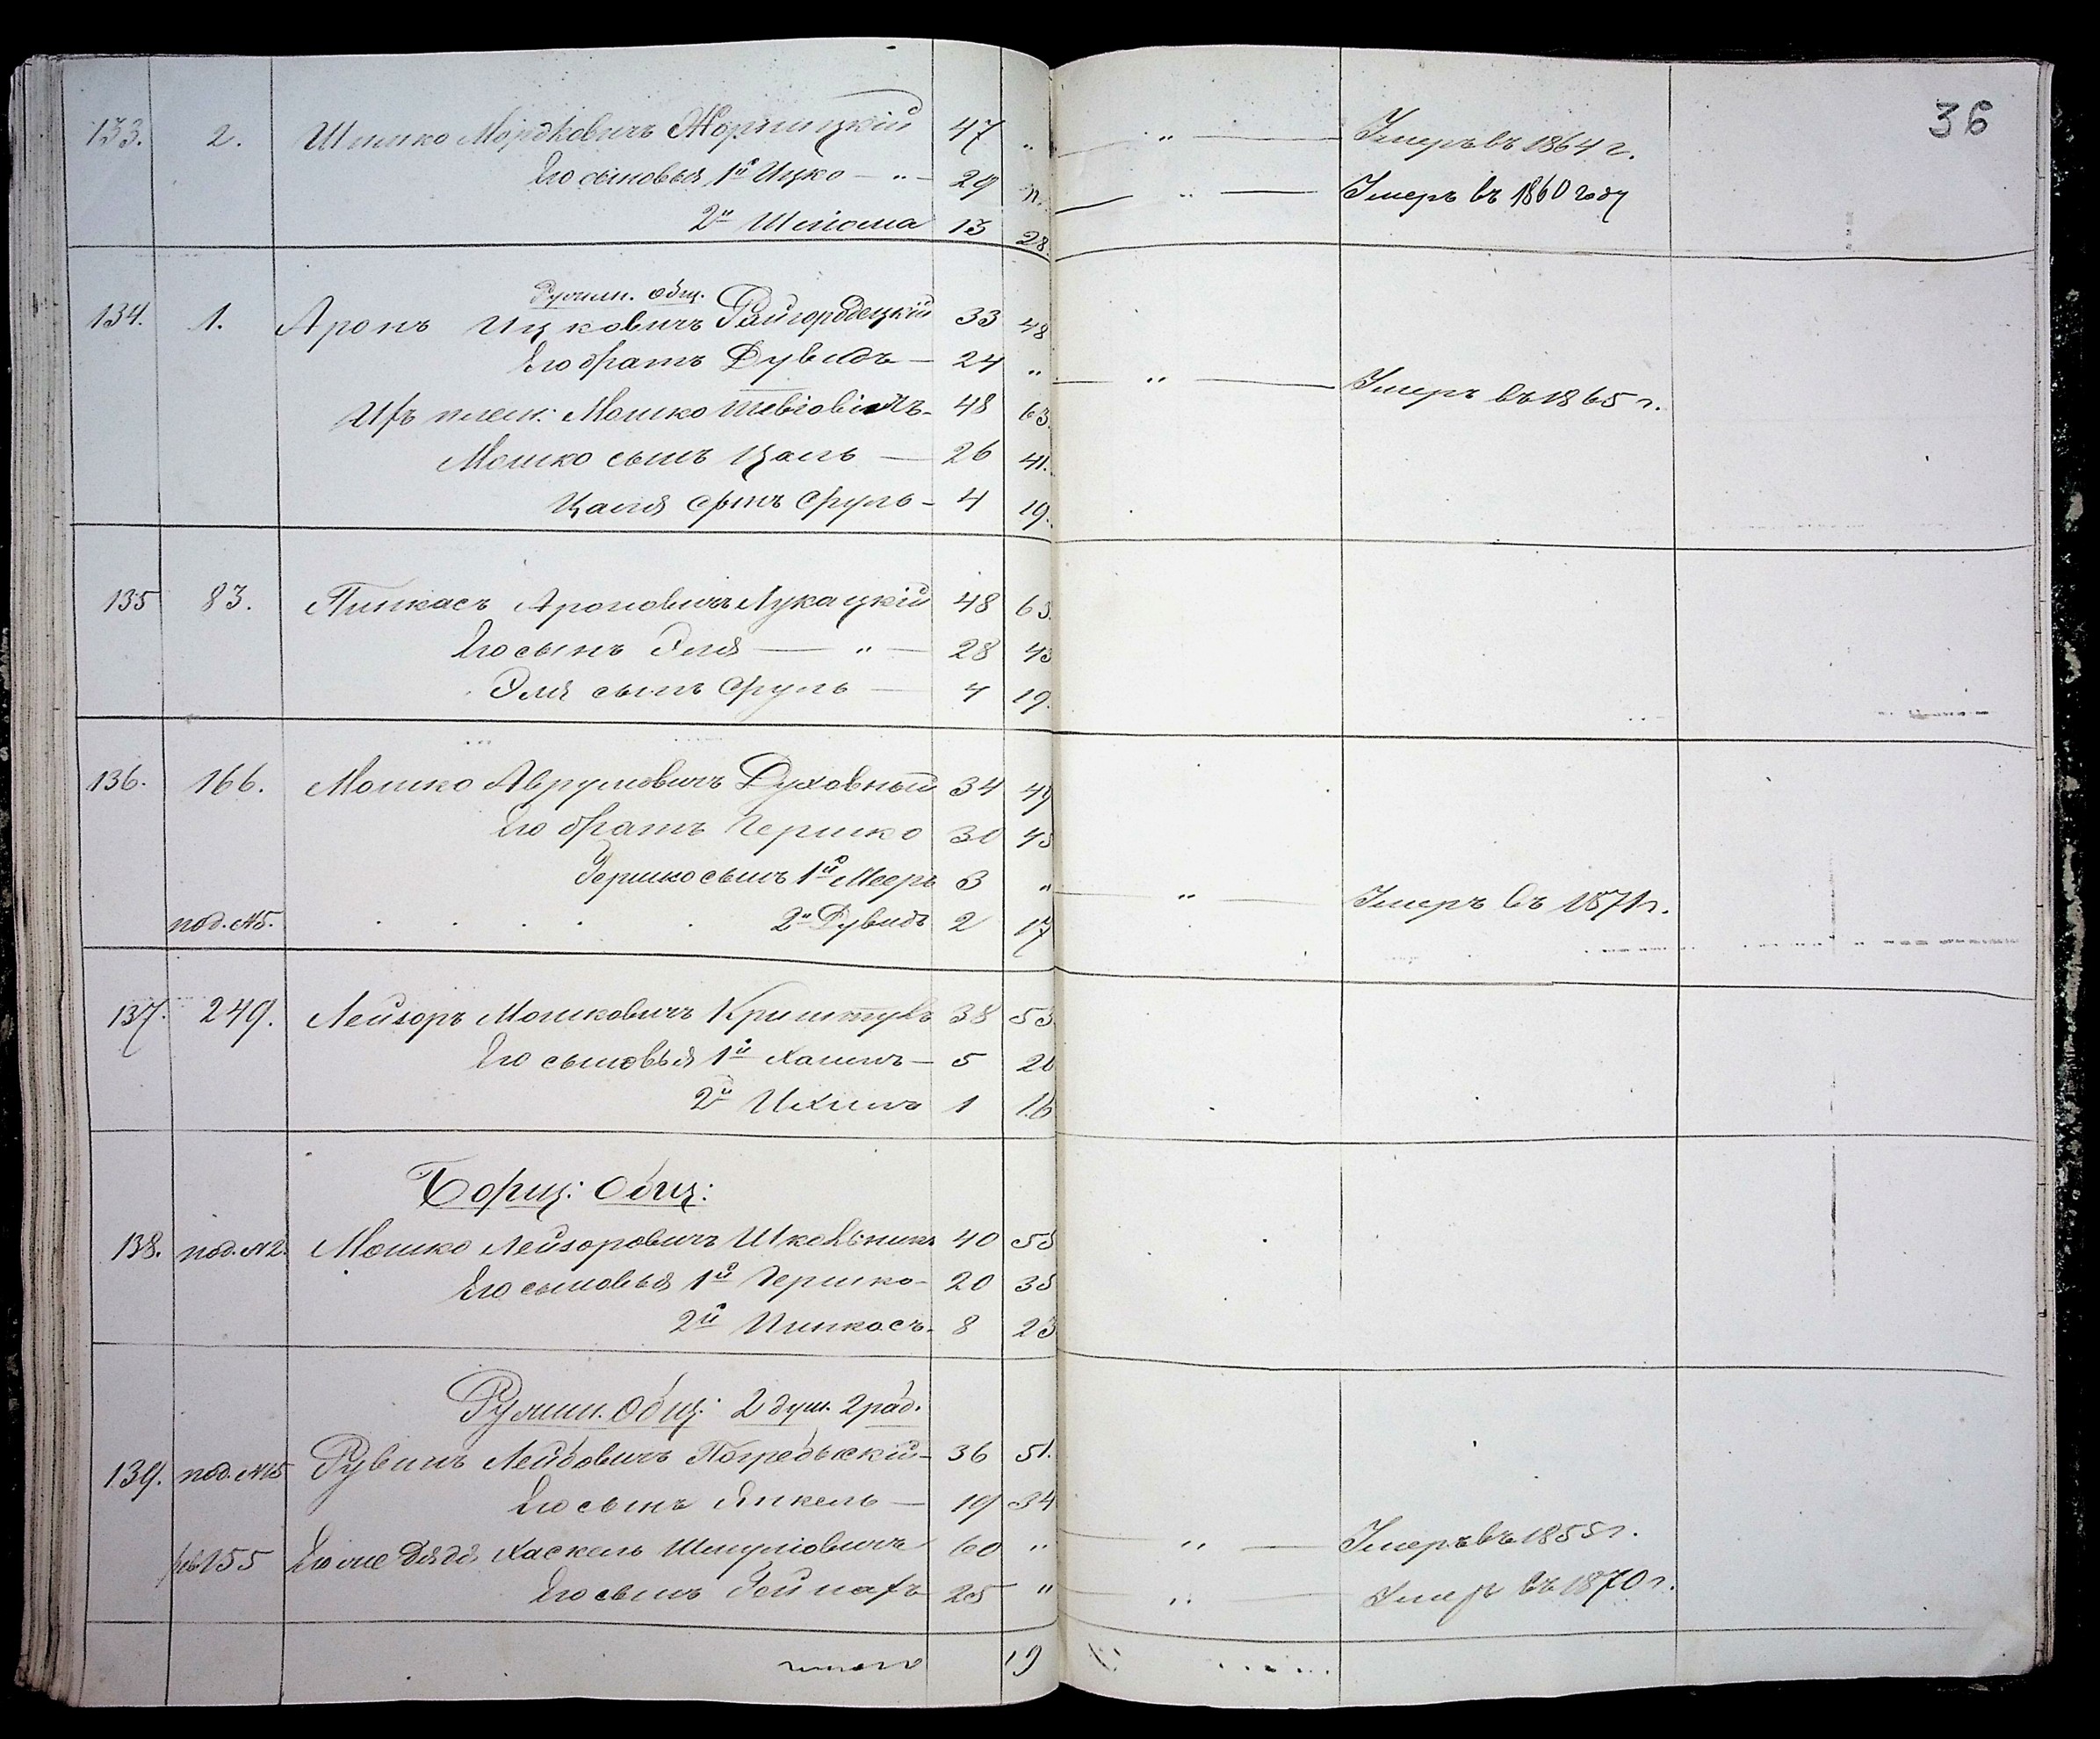 36
133. 2. Шмилко Мордковичъ Жорницкій 47 „ — „ — Умеръ въ 1864 г.
Его сыновья 1й Ицко — „ — 29 „ — „ — Умеръ въ 1860 году
2й Шлiома 13 28.
Ружин. общ.
134. 1. Аронъ Ицковичъ Райгородецкій 33 48
Его братъ Дувидъ — 24 „ — „ — Умеръ въ 1865 г.
Ихъ плем: Мошко Тевіовичъ - 48 63.
Мошко сынъ Цаль — 26 41.
Цаля сынъ Сруль - 4 19.
135 83. Пинкасъ Ароновичъ Лукацкій 48 63.
Его сынъ Эля — „ — 28 43
Эля сынъ Сруль — 4 19.
136. 166. Мошко Аврумовичъ Духовный 34 49
Его братъ Гершко 30 45
Гершко сынъ 1й Мееръ 3 „ — „ — Умеръ въ 1871 г.
под. №5. 2й Дувидъ 2 17
137. 249. Лейзоръ Мошковичъ Криштулъ 38 53.
Его сыновья 1й Хаимъ — 5 20
2й Ихилъ 1 16
Борщ: Общ:
138. под. №2. Мошко Лейзоровичъ Школьникъ 40 55
Его сыновья 1й Гершко - 20 35
2й Пинкасъ - 8 23
Ружин. Общ: 2 душ. 2 раб.
139. под. №15 Рувинъ Лейбовичъ Погребыский - 36 51.
Его сынъ Янкель — 19 34
155 Его же дядя Хаскель Шмуліовичъ 60 „ — „ — Умеръ въ 1855 г.
Его сынъ Рейнахъ 25 „ — „ — Умеръ въ 1870 г.
итого 19